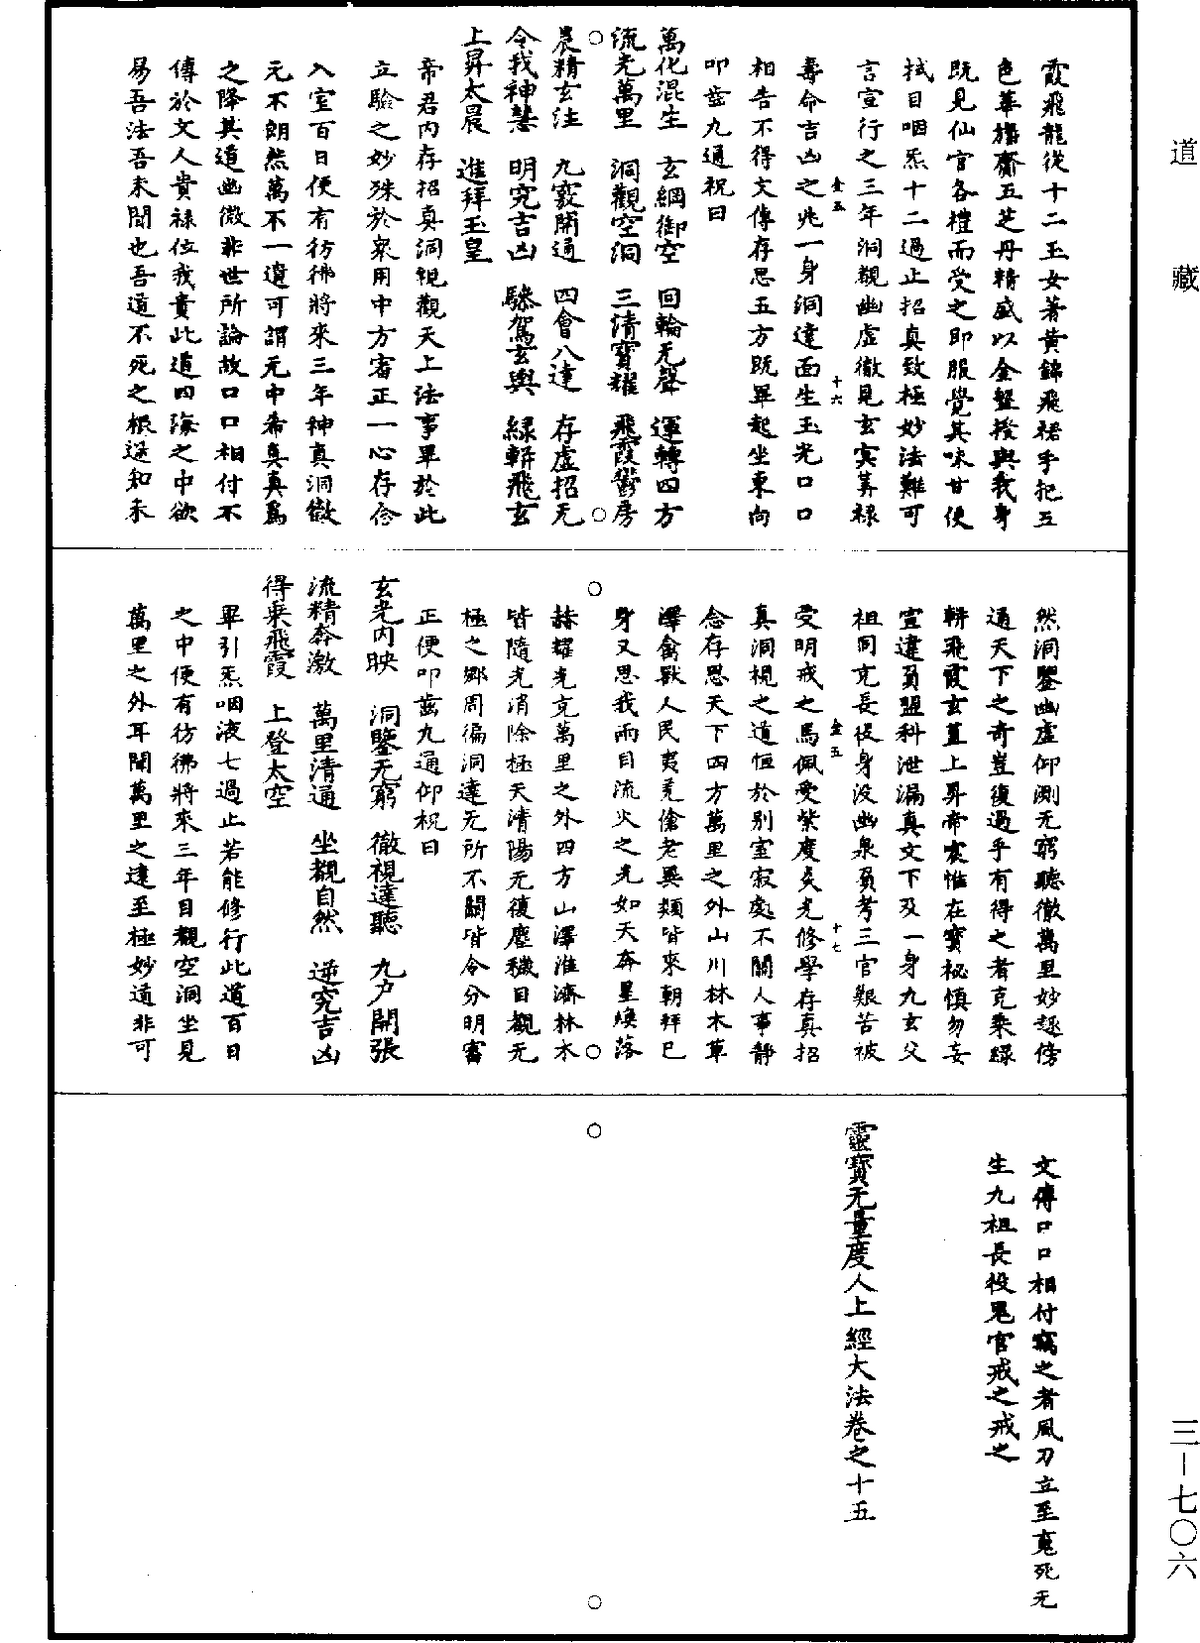 道藏
三—七〇六
霞飛龍從十二玉女著黃錦飛裙手把五
色華旛齎五芝丹精盛以金盤授與我身
既見仙官各禮而受之即服覺其味甘便
拭目咽炁十二過止招真致極妙法難可
言宣行之三年洞觀幽虛徹見玄冥筭祿
壽命吉凶之兆一身洞達面生玉光口口
相告不得文傳存思五方既畢起坐東向
叩齒九通祝曰
萬化混生 玄綱御空 回輪无聲 運轉四方
流光萬里 洞觀空洞 三清寶耀 飛霞鬱房
晨精玄注 九竅開通 四會八達 存虛招无
令我神慧 明究吉凶 驂駕玄輿 綠軿飛玄
上昇太晨 進拜玉皇
帝君內存招真洞視觀天上法事畢於此
立驗之妙殊於衆用中方審正一心存念
入室百日便有彷彿將來三年神真洞徹
元不朗然萬不一遺可謂元中希真真爲
之降其道幽微非世所論故口口相付不
傳於文人貴祿位我貴此道四海之中欲
易吾法吾未聞也吾道不死之根逆知未
金五 十六
然洞鑒幽虛仰測无窮聽徹萬里妙趣傍
通天下之奇豈復過乎有得之者克乘綠
軿飛霞玄蓋上昇帝宸惟在寶祕慎勿妄
宣違負盟科泄漏真文下及一身九玄父
祖同充長役身没幽泉負考三官艱苦被
受明戒之焉佩受紫度炎光修學存真招
真洞視之道恒於别室寂處不關人事靜
念存思天下四方萬里之外山川林木草
澤禽獸人民夷羌傖老異類皆來朝拜己
身又思我兩目流火之光如天奔星煥落
赫耀光充萬里之外四方山澤淮濟林木
皆隨光消除極天清陽无復塵穢目覩无
極之鄉周徧洞達无所不關皆令分明審
正便叩齒九通仰祝曰
玄光內映 洞鑒无窮 徹視達聽 九戸開張
流精奔激 萬里清通 坐覩自然 逆究吉凶
得乗飛霞 上登太空
畢引炁咽液七過止若能修行此道百日
之中便有彷彿將來三年目覩空洞坐見
萬里之外耳聞萬里之逺至極妙道非可
金五 十七
文傳口口相付竊之者風刀立至䰟死无
生九祖長役鬼官戒之戒之
靈寶无量度人上經大法卷之十五